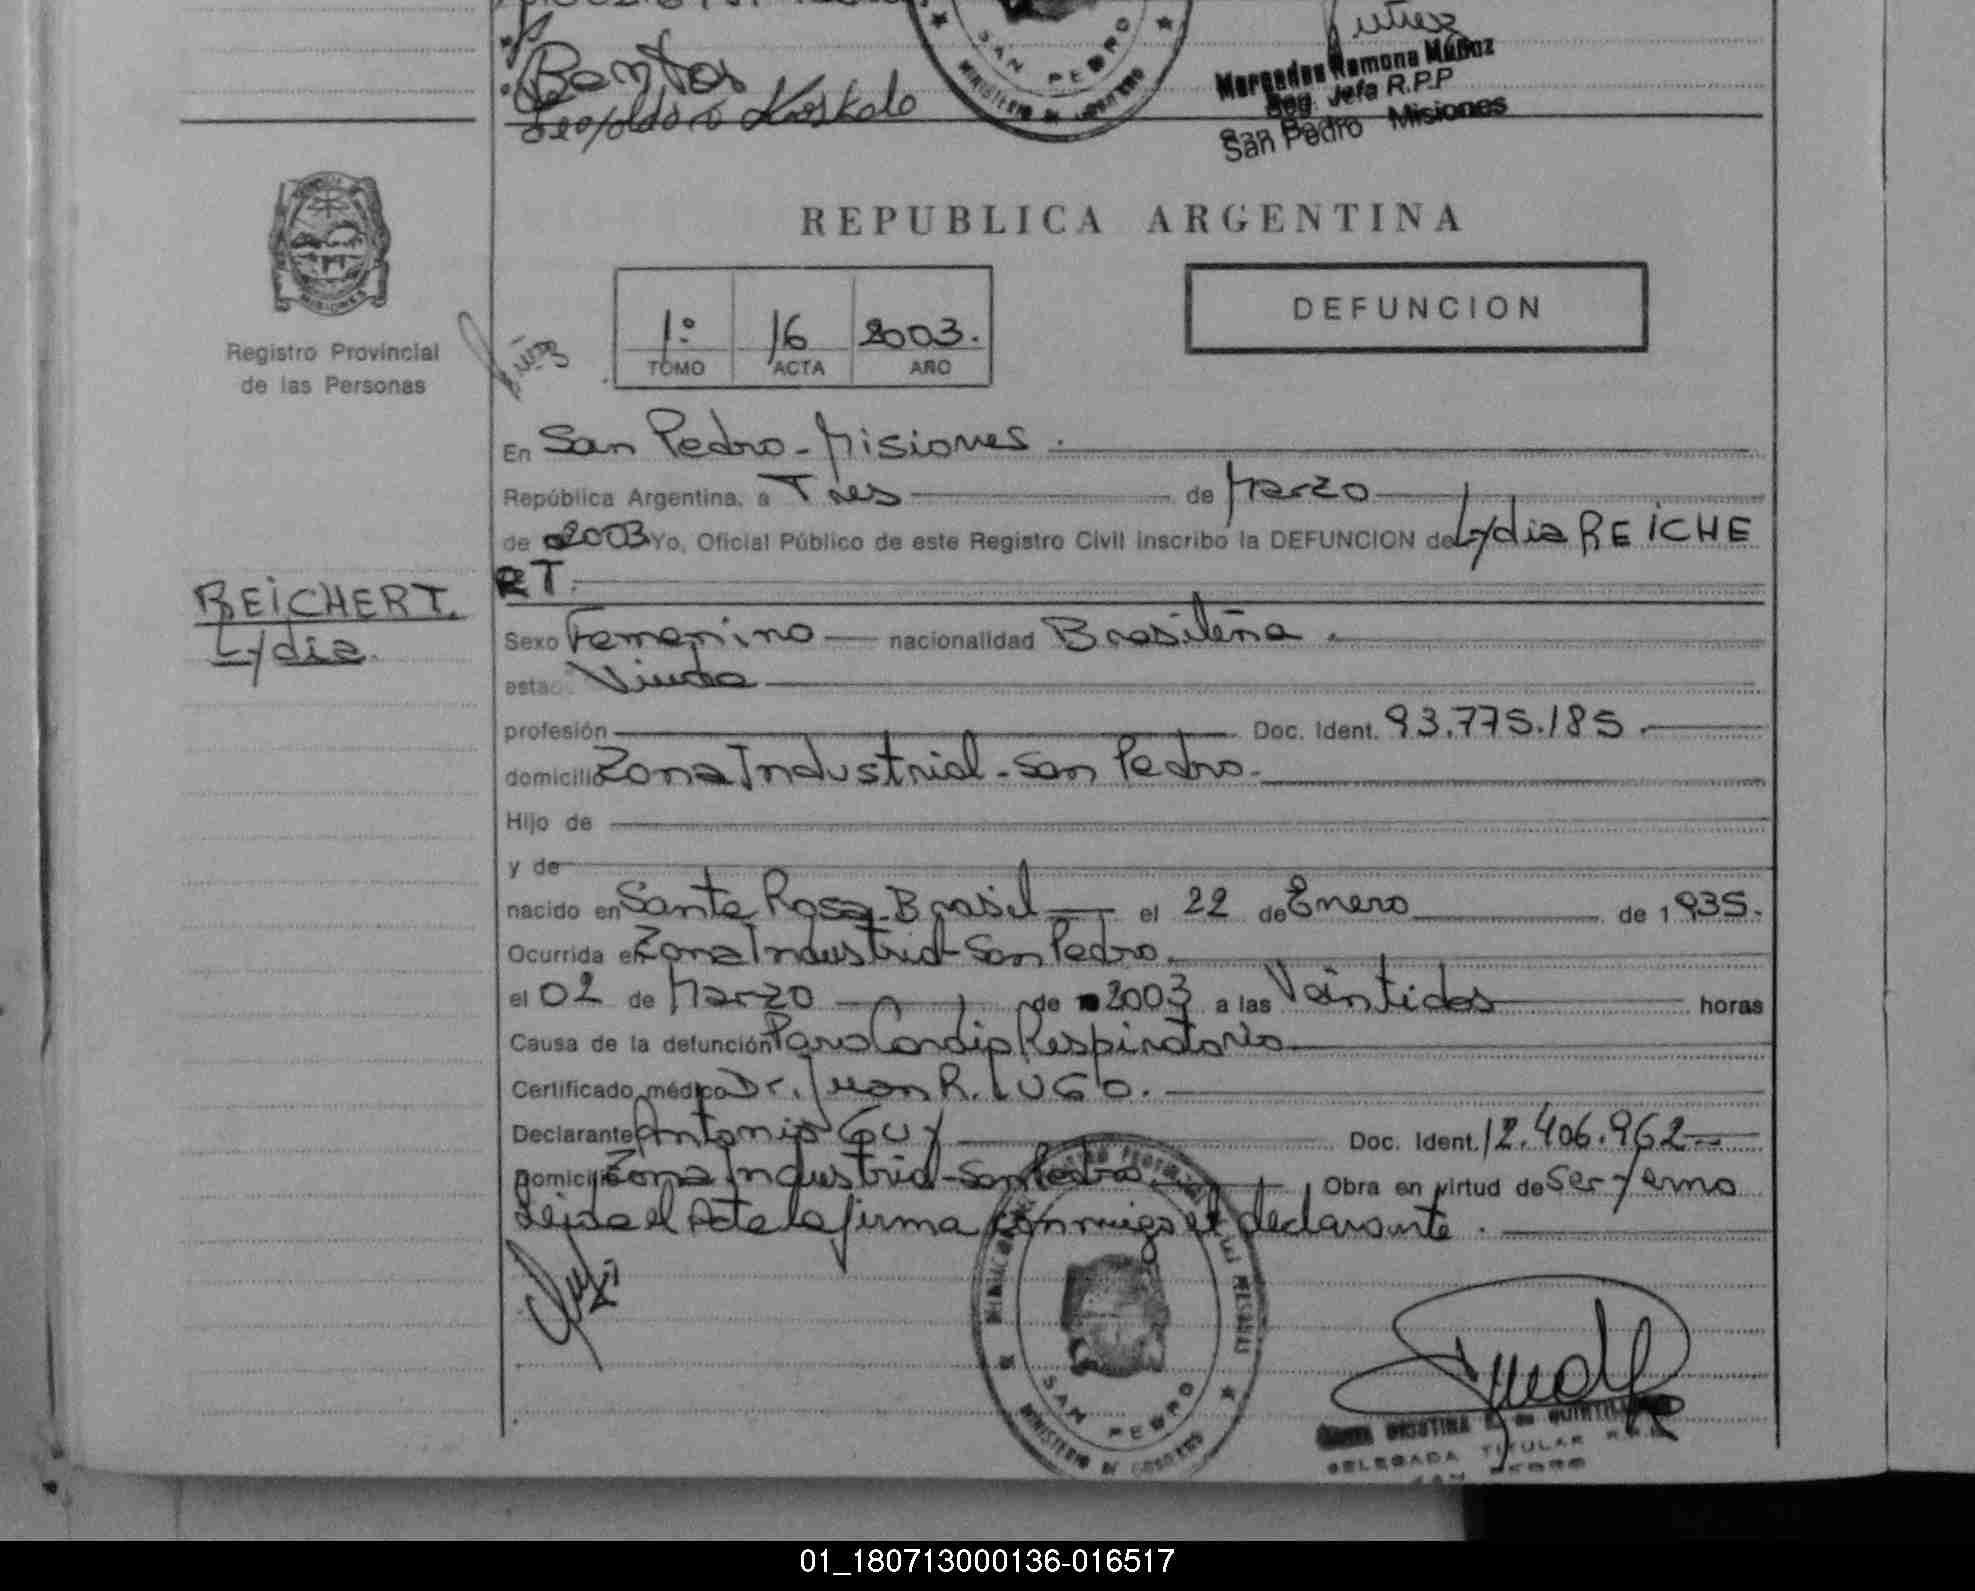 Bentos
Leopoldo Koskolo
SAN PEDRO
MINISTERIO DE GOBIERNO
Mercedes Ramona Muñoz
Reg. Jefa R.P.P
San Pedro Misiones
MISIONES
Registro Provincial
de las Personas
REPUBLICA ARGENTINA
1º 16 2003.
TOMO ACTA AÑO
DEFUNCION
En San Pedro - Misiones.
República Argentina, a Tres de Marzo
de 2003 Yo, Oficial Público de este Registro Civil inscribo la DEFUNCION de Lydia REICHE
RT.
REICHERT.
Lydia.
Sexo Femenino nacionalidad Brasileña.
estado Viuda
profesión Doc. Ident. 93.775.185.
domicilio Zona Industrial - San Pedro.
Hijo de
y de
nacido en Santa Rosa - Brasil el 22 de Enero de 1935.
Ocurrida en Zona Industrial - San Pedro.
el 02 de Marzo de 2003 a las Veintidos horas
Causa de la defunción Paro Cardio Respiratorio
Certificado médico Dr. Juan R. LUGO.
Declarante Antonio Guy Doc. Ident. 12.406.962
Domicilio Zona Industrial - San Pedro Obra en virtud de Ser Yerno
Leida el Acta la firma conmigo el declarante.
SAN PEDRO
MINISTERIO DE GOBIERNO
CRISTINA
DELEGADA TITULAR
SAN PEDRO
01_180713000136-016517